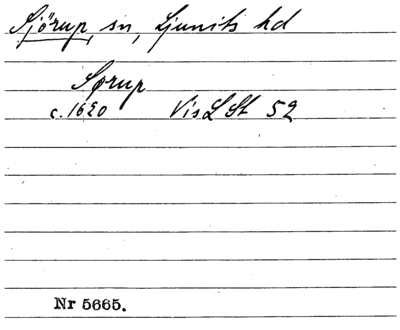 Sjörup, sn, Ljunits hd
Sørup
c. 1620 VisLSt 52
Nr 5665.